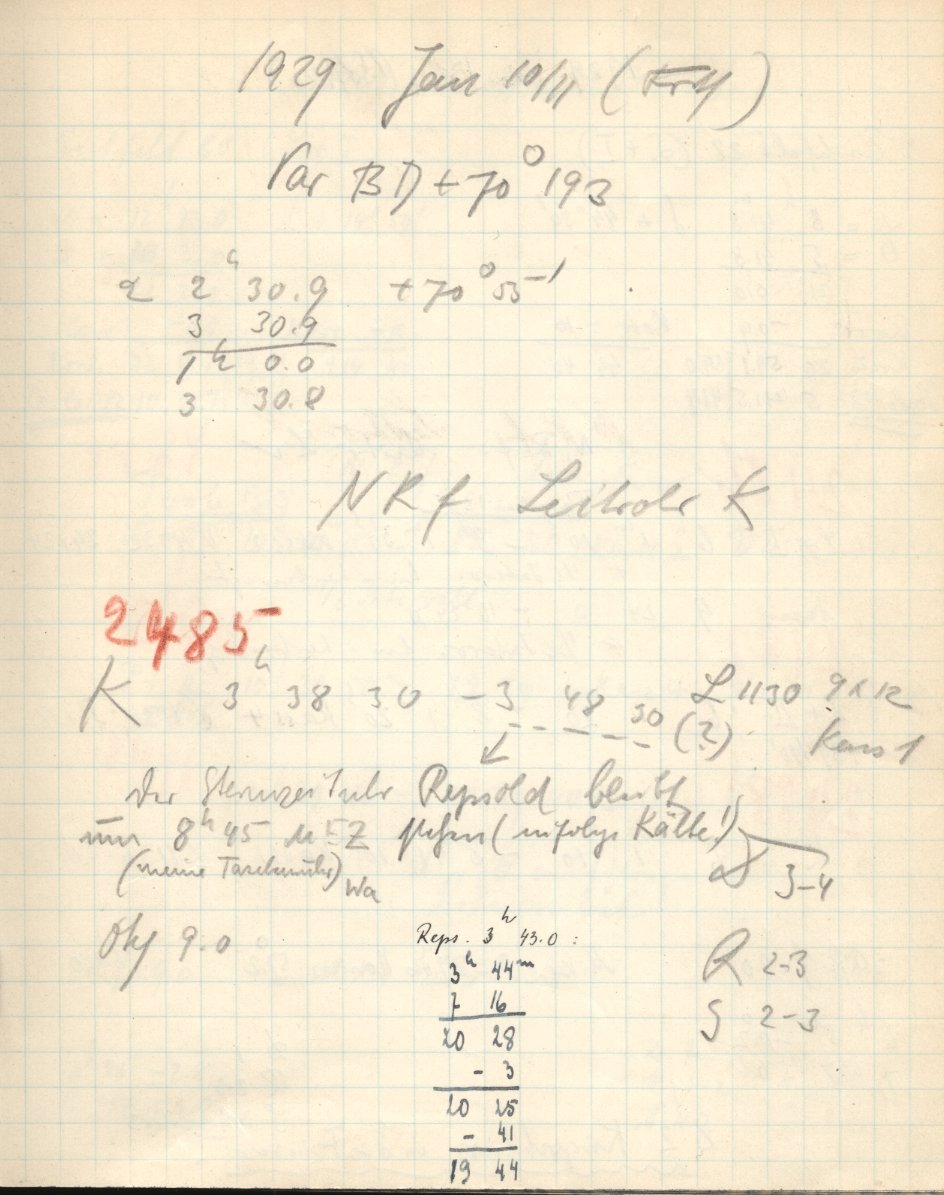 1929 Jan 10/11
Var BD + 70° 193
α 2ʰ 30.9 + 70° 55'
3 30.9
1ʰ 0.0
3 30.8
NRf Leitrohr K
2485
K 3ʰ 38 30 - 3 48 30 (?) L 1130 9x12
Kass 1
Der Sternzeituhr Repsold bleibt
um 8ʰ 45 MEZ stehen (infolge Kälte!)
(meine Taschenuhr) Wa
3-4
Obj 9.0
Reps. 3ʰ 43.0 :
3ʰ 44ᵐ
7 16
20 28
- 3
20 25
- 41
19 44
R 2-3
S 2-3